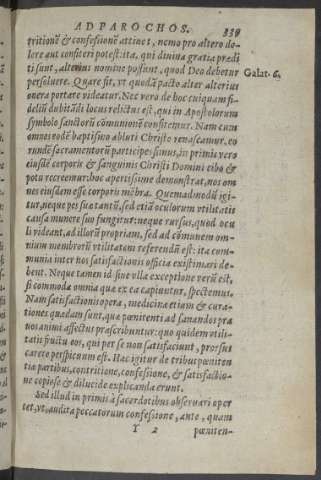 AD PAROCHOS. 339
tritionē & confessionē attinet, nemo pro altero do-
lere aut confiteri potest: ita, qui divina gratia prædi
ti sunt, alterius nomine possunt, quod Deo debetur
persolvere. Quare fit, vt quodā pacto alter alterius
onera portare videatur. Nec vero de hoc cuiquam fi-
deliū dubitādi locus relictus est, qui in Apostolorum
symbolo sanctorū cōmunionē confitemur. Nam cum
omnes eodē baptismo abluti Christo renascamur, eo
rundē sacramentorū participes simus, in primis vero
eiusdē corporis & sanguinis Christi Domini cibo &
potu recreemur: hoc apertissime demonstrat, nos om
nes eiusdam esse corporis mēbra. Quemadmodū igi-
tur, neque pes suæ tantū, sed etiā oculorum vtilitatis
causa munere suo fungitur: neque rursus, quod ocu
li videant, ad illorū propriam, sed ad cōmunem om-
nium membrorū vtilitatem referendū est: ita com-
munia inter nos satisfactionis officia existimari de-
bent. Neque tamen id sine vlla exceptione verū est,
si commoda omnia quæ ex ea capiuntur, spectemus.
Nam satisfactionis opera, medicinæ etiam & cura-
tiones quædam sunt, quæ pœnitenti ad sanandos pra
uos animi affectus præscribuntur: quo quidem vtili-
tatis fructu eos, qui per se non satisfaciunt, prorsus
carere perspicuum est. Hæc igitur de tribus pœniten
tiæ partibus, contritione, confessione, & satisfactio-
ne copiose & dilucide explicanda erunt.
Sed illud in primis à sacerdotibus observari opor
tet, vt, audita peccatorum confessione, ante, quam
Y 2 pœniten-
Galat. 6.